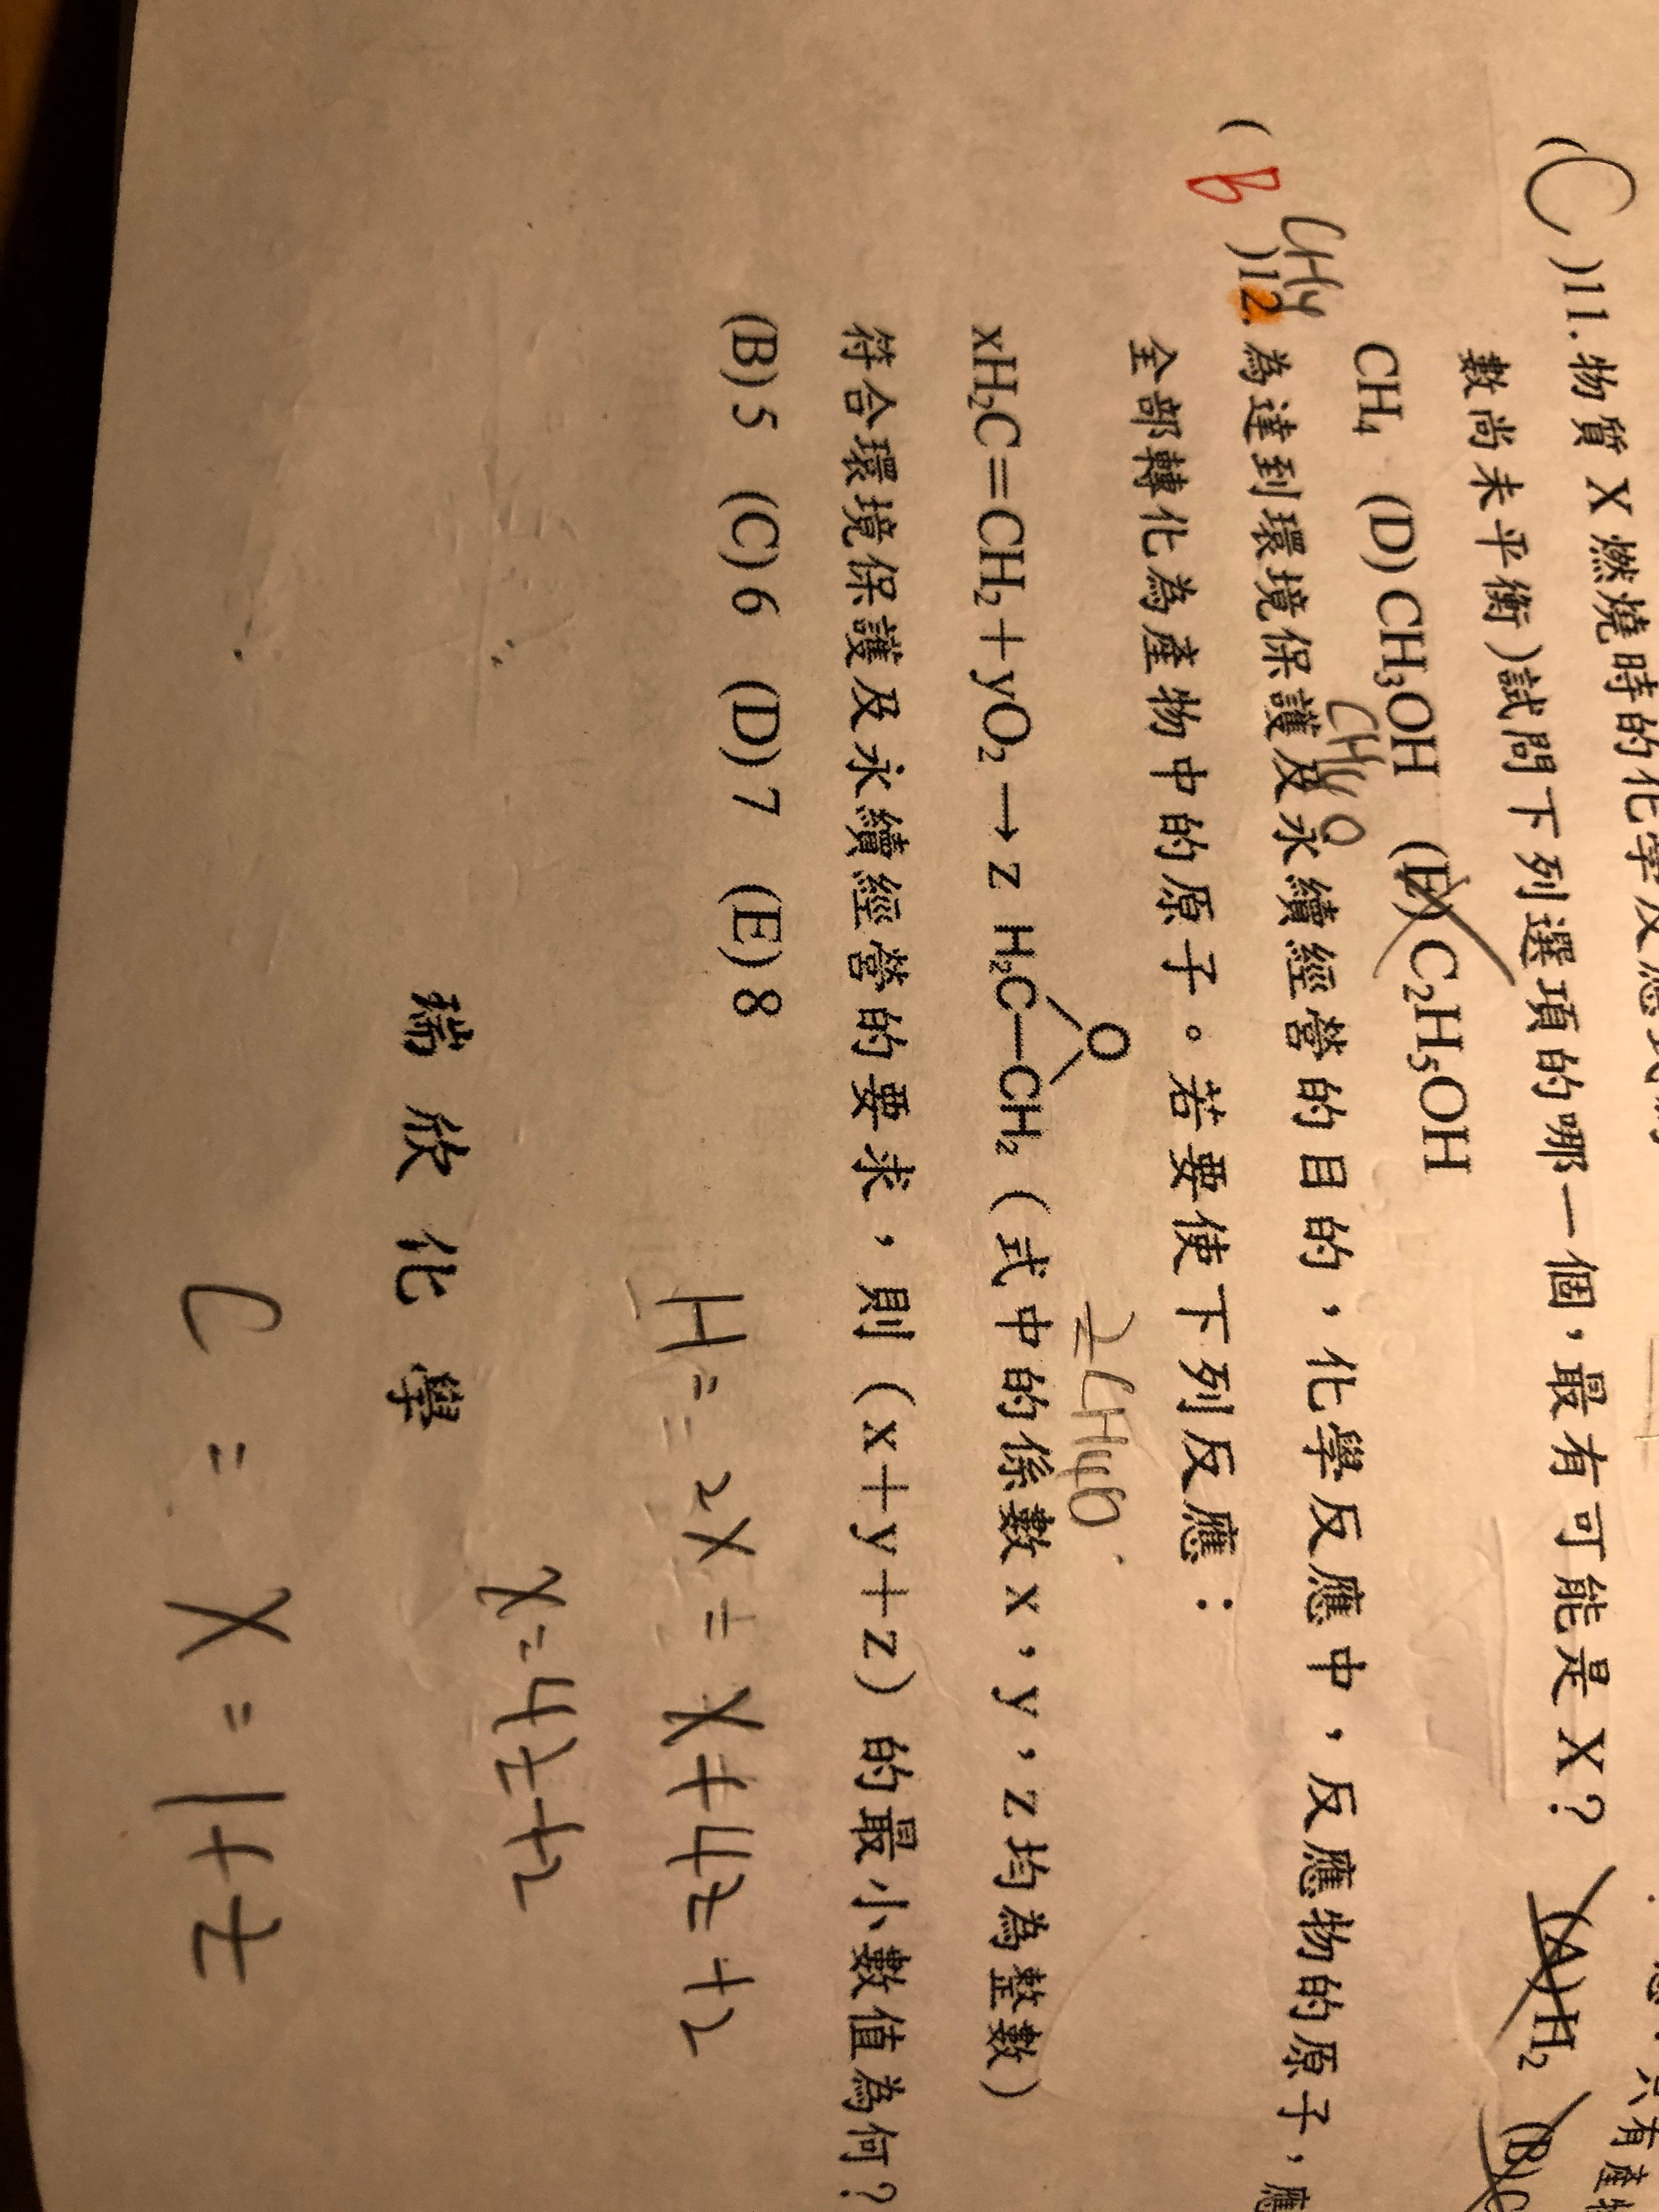 (C)11.物質X燃燒時的化學反應式
數尚未平衡)試問下列選項的哪一個,最有可能是X? (A)H₂
CH₄ (D)CH₃OH (E)C₂H₅OH
CH4
CH4O
(B)12.為達到環境保護及永續經營的目的,化學反應中,反應物的原子,應
全部轉化為產物中的原子。若要使下列反應:
2CH4O
O
xH₂C=CH₂+yO₂→z H₂C—CH₂(式中的係數x,y,z均為整數)
符合環境保護及永續經營的要求,則(x+y+z)的最小數值為何?
(B)5 (C)6 (D)7 (E)8
H= 2X = X+4Z+2
X=4Z+2
瑞欣化學
C = X = 1+Z